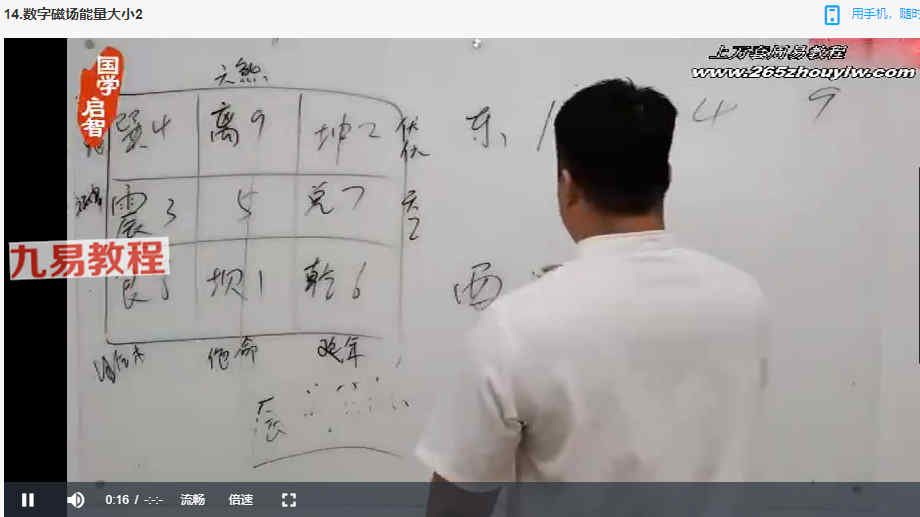 14.数字磁场能量大小2
用手机，随时
国学启智
上万套周易教程
www.265zhouyiw.com
六煞
巽4 离9 坤2 伏
东 4 9
震3 5 兑7
九易教程
坎1 乾6
西
绝命
0:16 / -:-:- 流畅 倍速